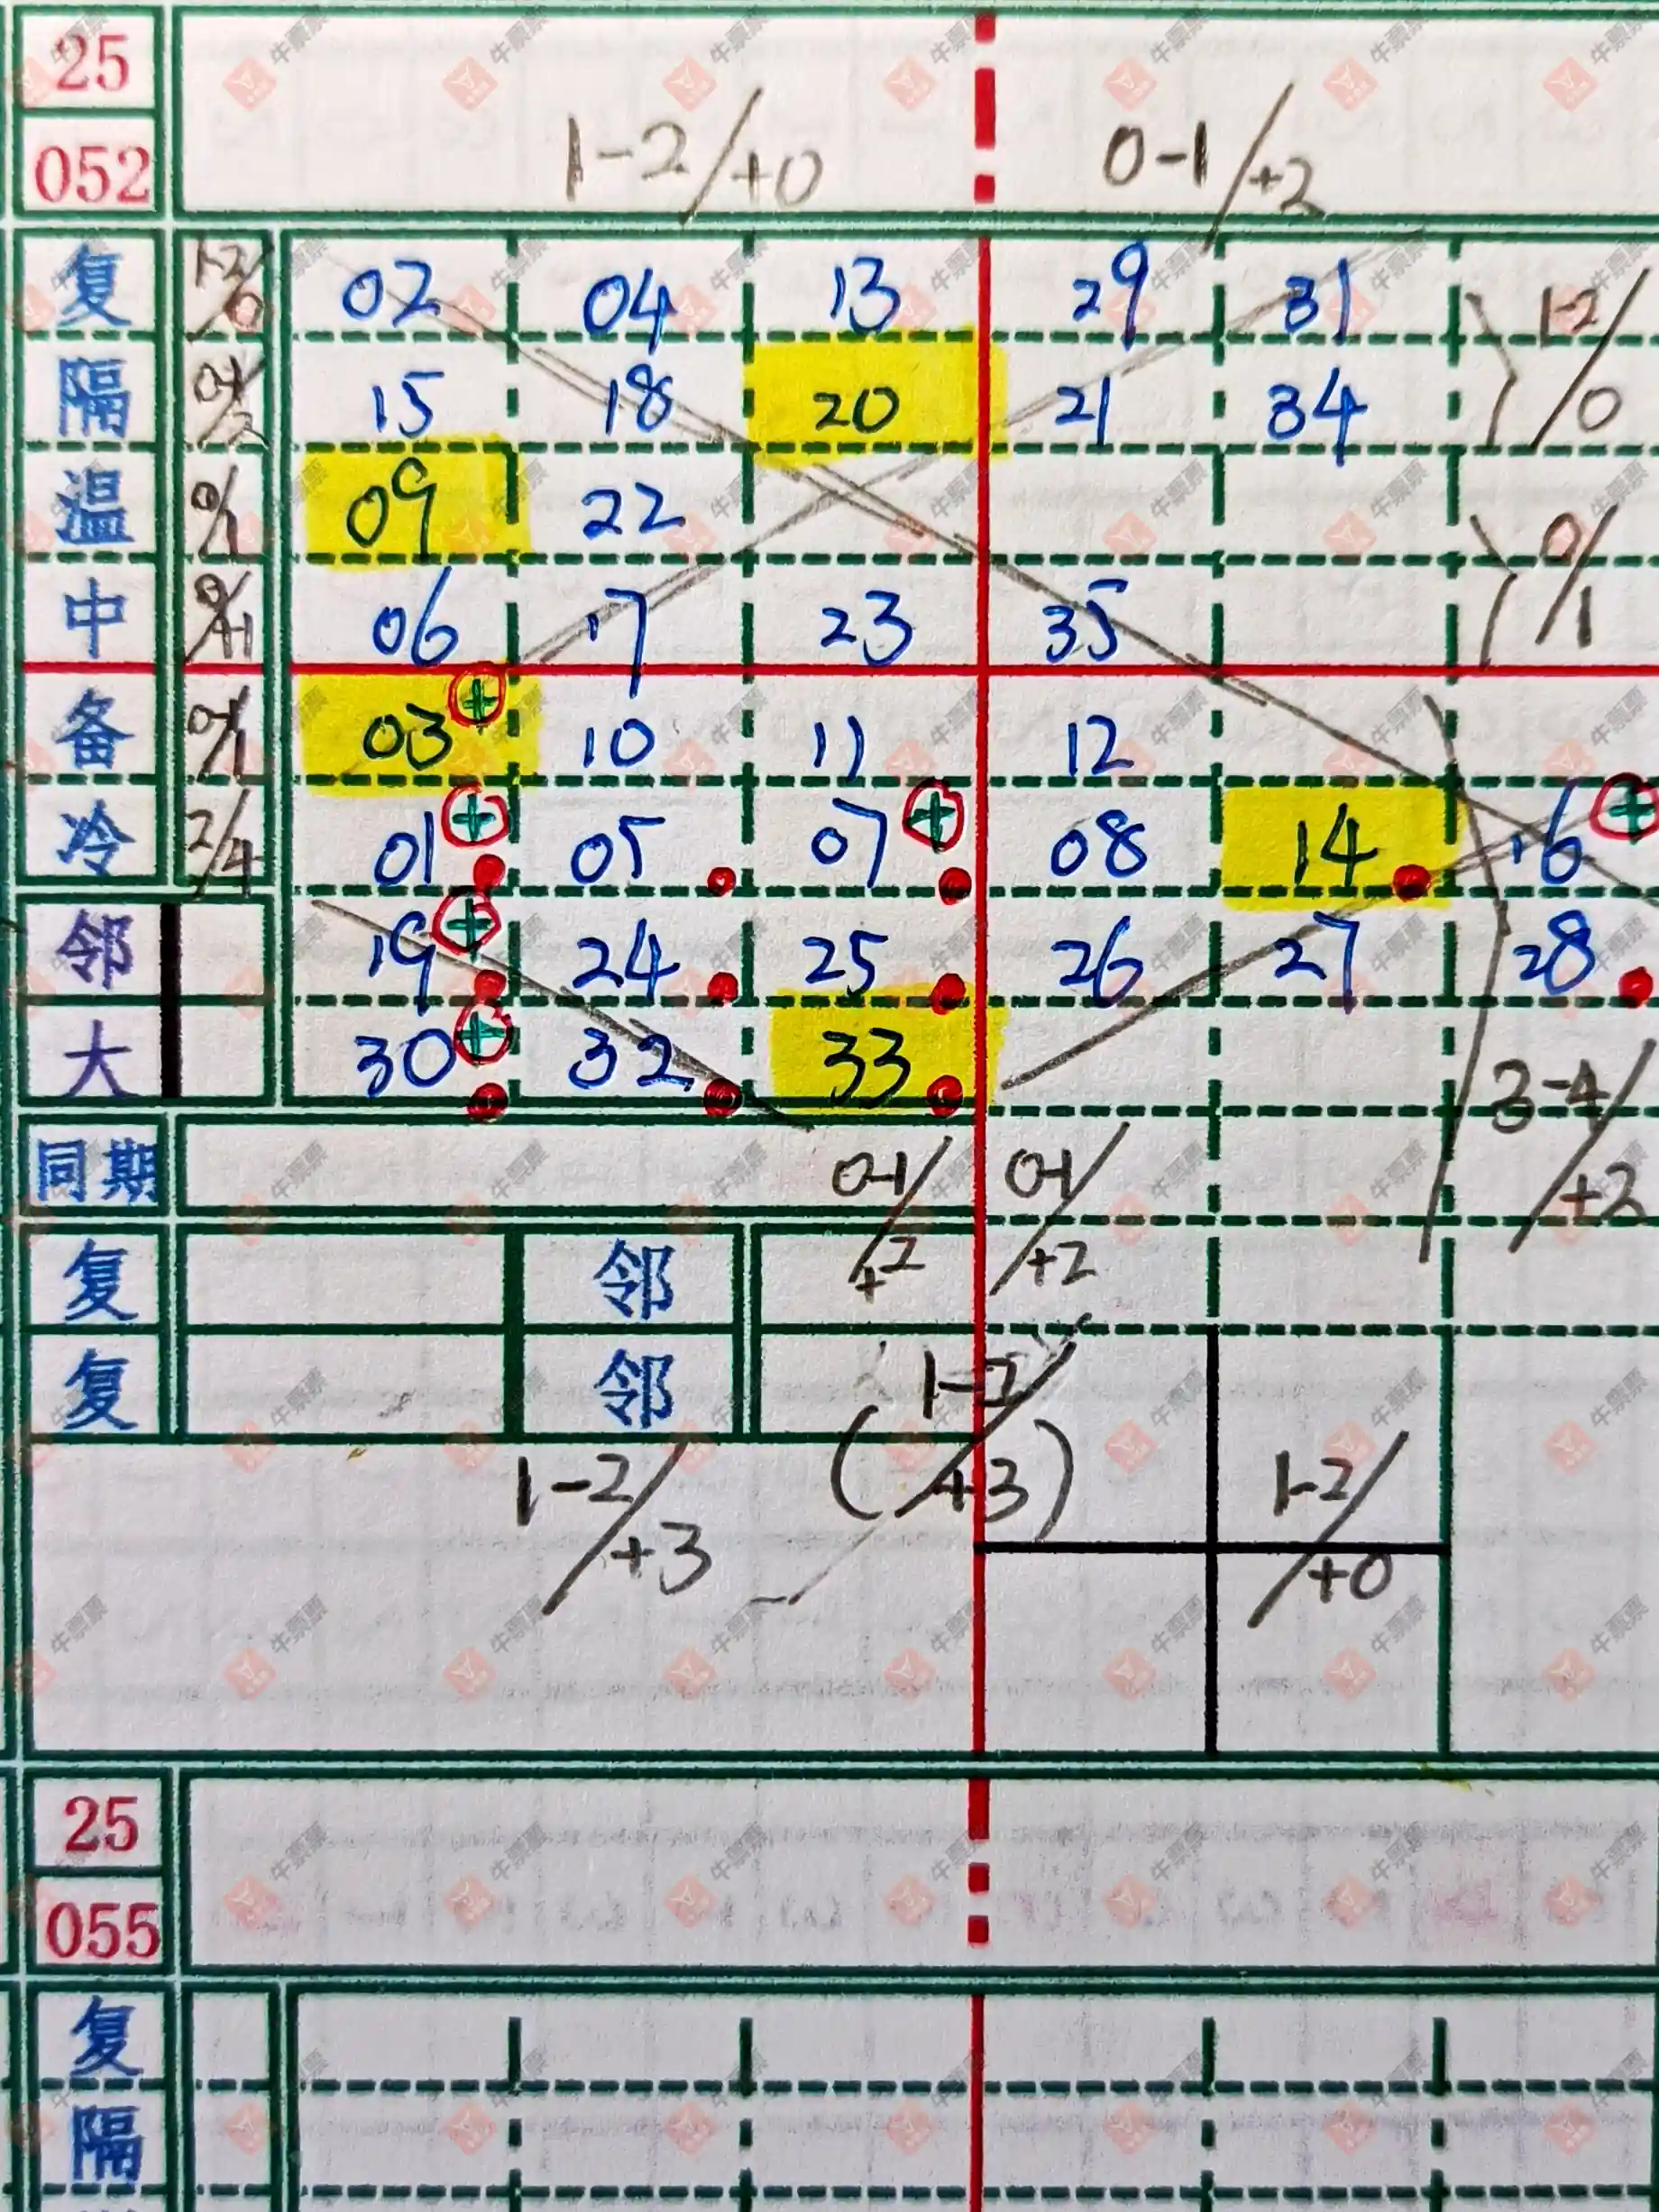 25
052
1-2/+0 0-1/+2
复 1-2/0 02 04 13 29 31 1-2/0
隔 0-1/2 15 18 20 21 34
温 0/1 09 22 0/1
中 0/+1 06 17 23 35
备 0-1/1 03 + 10 11 12
冷 2/4 01 + 05 07 + 08 14 16 +
邻 19 + 24 25 26 27 28
大 30 + 32 33 3-4/+2
同期 0-1/+2 0-1/+2
复 邻
复 邻 1-2/+3
(1-2/+3) 1-2/+0
25
055
复
隔
牛票票